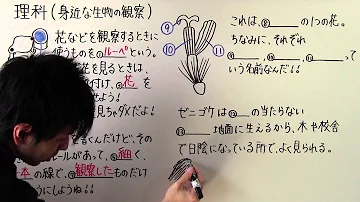 理科(身近な生物の観察)
花などを観察するときに
使うものを⑭ルーペという。
花を見るときは、
付け、⑮花を
よう!
見ちゃダメだよ!
くんだけど、その
ルールがあって、⑯細く、
本の線で、⑱観察したものだけ
ようにしようね!!
⑨
⑩
⑪
これは、⑧の1つの花。
ちなみに、それぞれ
⑨、⑩、⑪って
いう名前なんだ!!
ゼニゴケは⑫の当たらない
⑬地面に生えるから、木や校舎
で日陰になっている所で、よく見られる。